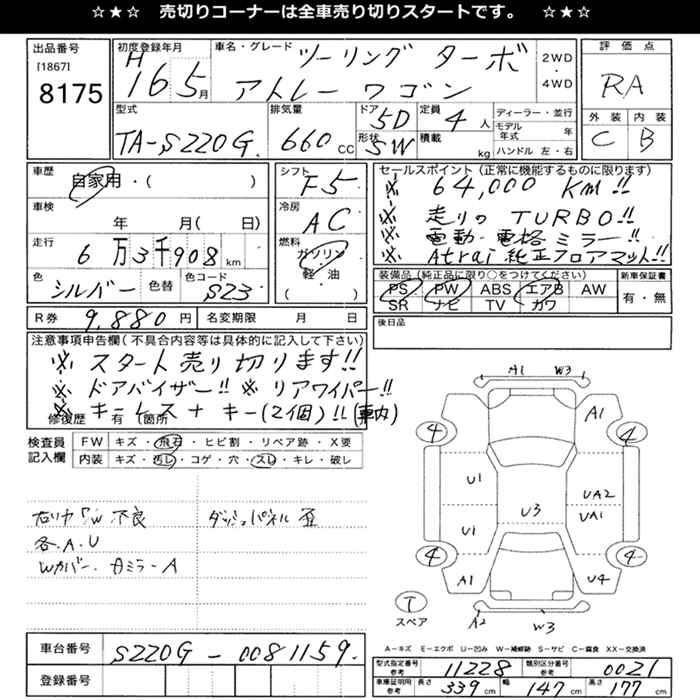 ☆★☆ 売切りコーナーは全車売り切りスタートです。 ☆★☆
出品番号
[1867]
8175
初度登録年月
H 16 5月
車名・グレード
ツーリング ターボ
アトレー ワゴン
2WD
・
4WD
評価点
RA
外装 内装
C B
型式
TA-S220G
排気量
660 CC
ドア
5D
形状
SW
定員
4人
積載
kg
ディーラー・並行
モデル年式 年
ハンドル 左・右
車歴
自家用・( )
車検
年 月( 日)
走行
6万3千908km
色
シルバー
色替
色コード
S23
シフト
F5
冷房
AC
燃料
ガソリン
(軽・油)
セールスポイント(正常に機能するものに限ります)
※ 64,000 Km!!
※ 走りの TURBO!!
※ 電動・電格ミラー!!
※ Atrai純正フロアマット!!
装備品(純正品に限り○をつけてください)
PS PW ABS エアB AW
SR ナビ TV カワ
新車保証書
有・無
R券 9,880円
名変期限 月 日
後日品
注意事項申告欄(不具合内容等は具体的に記入して下さい)
※ スタート売り切ります!!
※ ドアバイザー!! ※ リアワイパー!!
※ キーレス+キー(2個)!!(車内)
修復歴 有 (箇所
検査員記入欄
FW キズ・飛石・ヒビ割・リペア跡・X要
内装 キズ・汚レ・コゲ・穴・スレ・キレ・破レ
右リヤPW不良
各.A.U
Wカバー.
ミラーA
ダッシュパネル
A1 W3
4 A1 4
U1 UA2
U3 UA1
U1
4 4
A1 U4
T
スペア
A2 W3
A−キズ E−エクボ U−凹み W−補修跡 S−サビ C−腐食 XX−交換済
車台番号 S220G-0081159.
登録番号
型式指定番号
参考
11228
類別区分番号
参考
0021
車庫証明用
参考
長さ 339cm 幅 147cm 高さ 177cm